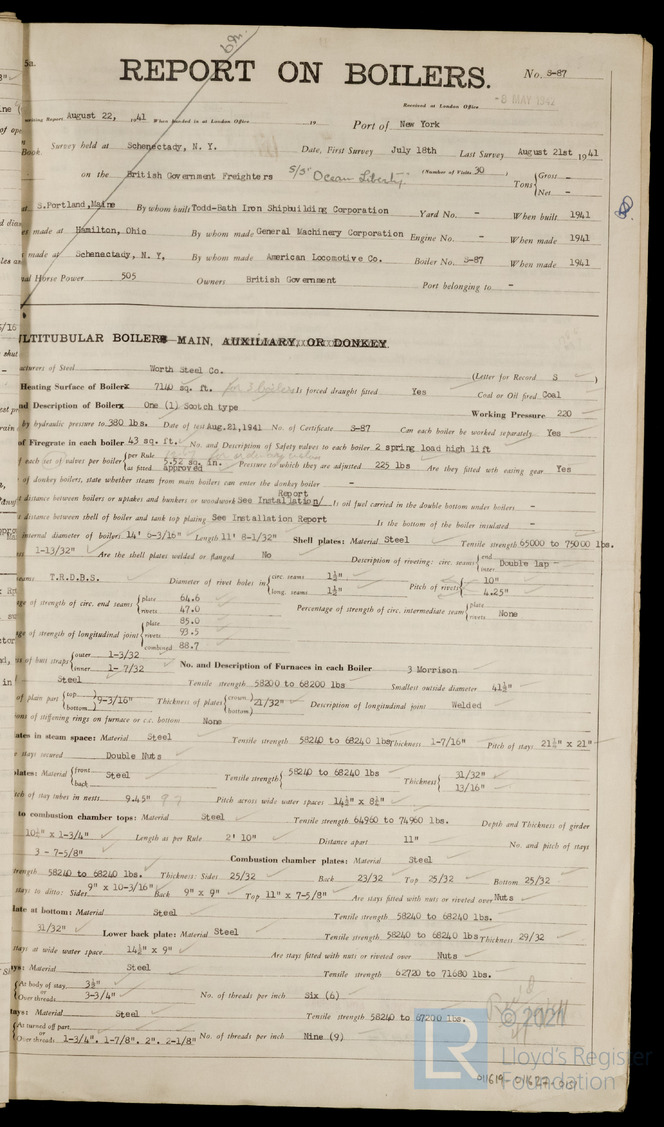 5a.
b.n.
REPORT ON BOILERS.
No. S-87
Received at London Office -8 MAY 1942
writing Report August 22, 1941 When handed in at London Office 19 Port of New York
Book Survey held at Schenectady, N. Y. Date, First Survey July 18th Last Survey August 21st 1941
on the British Government Freighters S/S "Ocean Liberty" (Number of Visits 30 ) Tons { Gross - Net -
at S.Portland, Maine By whom built Todd-Bath Iron Shipbuilding Corporation Yard No. - When built 1941
s made at Hamilton, Ohio By whom made General Machinery Corporation Engine No. - When made 1941
made at Schenectady, N. Y. By whom made American Locomotive Co. Boiler No. S-87 When made 1941
al Horse Power 505 Owners British Government Port belonging to -
LTITUBULAR BOILERS MAIN, AUXILIARY, OR DONKEY.
acturers of Steel Worth Steel Co. (Letter for Record S )
Heating Surface of Boilers 7140 sq. ft. for 3 boilers Is forced draught fitted Yes Coal or Oil fired Coal
nd Description of Boilers One (1) Scotch type Working Pressure 220
by hydraulic pressure to 380 lbs. Date of test Aug.21,1941 No. of Certificate S-87 Can each boiler be worked separately Yes
of Firegrate in each boiler 43 sq. ft. No. and Description of Safety valves to each boiler 2 spring load high lift
of each set of valves per boiler { per Rule as fitted 5.52 sq. in. approved Pressure to which they are adjusted 225 lbs Are they fitted with easing gear Yes
of donkey boilers, state whether steam from main boilers can enter the donkey boiler -
t distance between boilers or uptakes and bunkers or woodwork See Installation Report Is oil fuel carried in the double bottom under boilers -
t distance between shell of boiler and tank top plating See Installation Report Is the bottom of the boiler insulated -
internal diameter of boilers 14' 6-3/16" Length 11' 8-1/32" Shell plates: Material Steel Tensile strength 65000 to 75000 lbs.
1-13/32" Are the shell plates welded or flanged No Description of riveting: circ. seams { end Double lap inter -
seams T.R.D.B.S. Diameter of rivet holes in { circ. seams 1½" long. seams 1½" Pitch of rivets { 10" 4.25"
ge of strength of circ. end seams { plate 64.6 rivets 47.0 Percentage of strength of circ. intermediate seam { plate rivets None
ge of strength of longitudinal joint { plate 85.0 rivets 93.5 combined 88.7
ss of butt straps { outer 1-3/32 inner 1-7/32 No. and Description of Furnaces in each Boiler 3 Morrison
Steel Tensile strength 58200 to 68200 lbs Smallest outside diameter 41½"
of plain part { top bottom 9-3/16" Thickness of plates { crown bottom 21/32" Description of longitudinal joint Welded
ions of stiffening rings on furnace or c.c. bottom None
ates in steam space: Material Steel Tensile strength 58240 to 68240 lbs Thickness 1-7/16" Pitch of stays 21½" x 21"
stays secured Double Nuts
plates: Material { front back Steel Tensile strength { 58240 to 68240 lbs Thickness { 31/32" 13/16"
tch of stay tubes in nests 9.45" Pitch across wide water spaces 14½" x 8½"
to combustion chamber tops: Material Steel Tensile strength 64960 to 74960 lbs. Depth and Thickness of girder
10½" x 1-3/4" Length as per Rule 2' 10" Distance apart 11" No. and pitch of stays
3 - 7-5/8" Combustion chamber plates: Material Steel
strength 58240 to 68240 lbs. Thickness: Sides 25/32 Back 23/32 Top 25/32 Bottom 25/32
stays to ditto: Sides 9" x 10-3/16" Back 9" x 9" Top 11" x 7-5/8" Are stays fitted with nuts or riveted over Nuts
late at bottom: Material Steel Tensile strength 58240 to 68240 lbs.
31/32" Lower back plate: Material Steel Tensile strength 58240 to 68240 lbs Thickness 29/32
stays at wide water space 14½" x 9" Are stays fitted with nuts or riveted over Nuts
ys: Material Steel Tensile strength 62720 to 71680 lbs.
{ At body of stay, or Over threads 3½" 3-3/4" No. of threads per inch Six (6)
tays: Material Steel Tensile strength 58240 to 67200 lbs.
{ At turned off part, or Over threads 1-3/4", 1-7/8", 2", 2-1/8" No. of threads per inch Nine (9)
© 2021
LR
Lloyd's Register
Foundation
011619-011627-0101